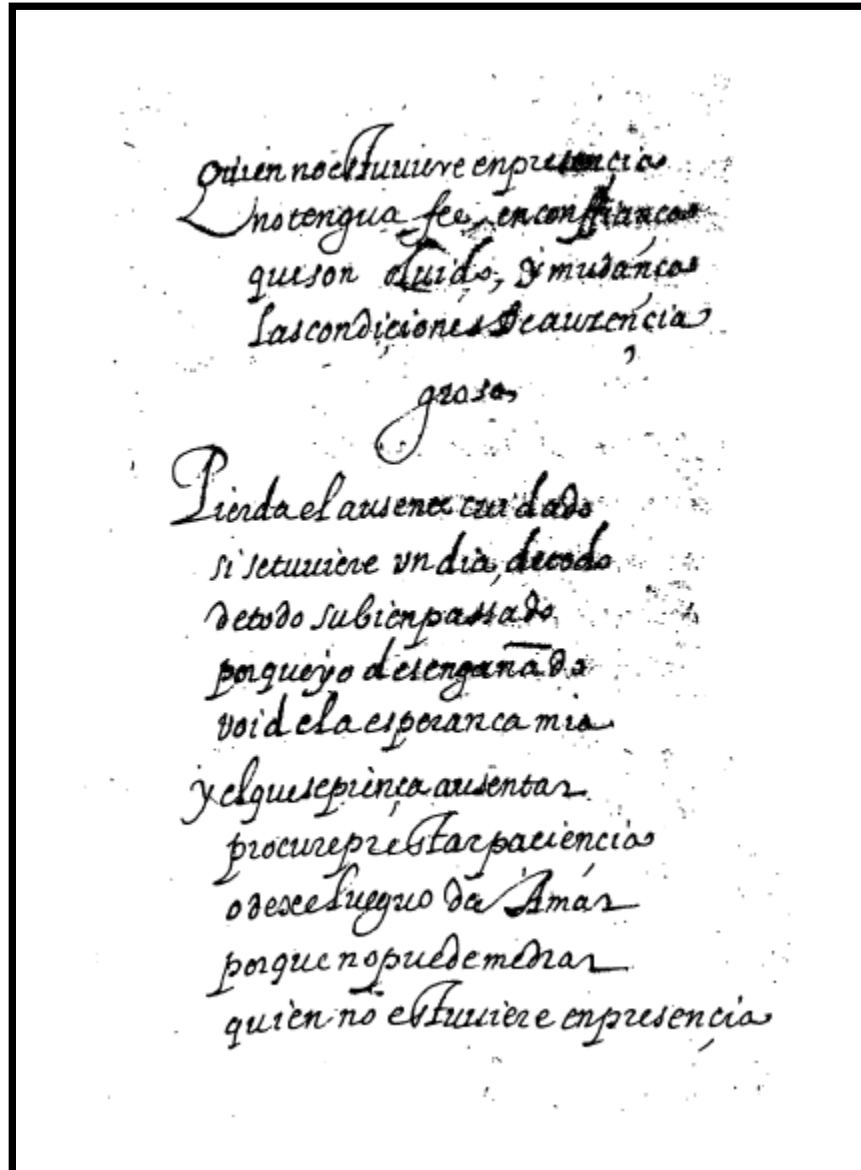 Quien no estuuiere en presencia
no tengua fee en conffiança
que son oluido, y mudanças
las condiçiones de auzençia
grosa,
Pierda el ausente cuidado
si se tuuiere vn dia, de todo
de todo su bien passado
porque yo desengañado
voi de la esperanca mia
y el que se piença ausentar
procure prestar paciencia
o dexe el fueguo de Amar
porque no puede medrar
quien no estuuiere en presençia